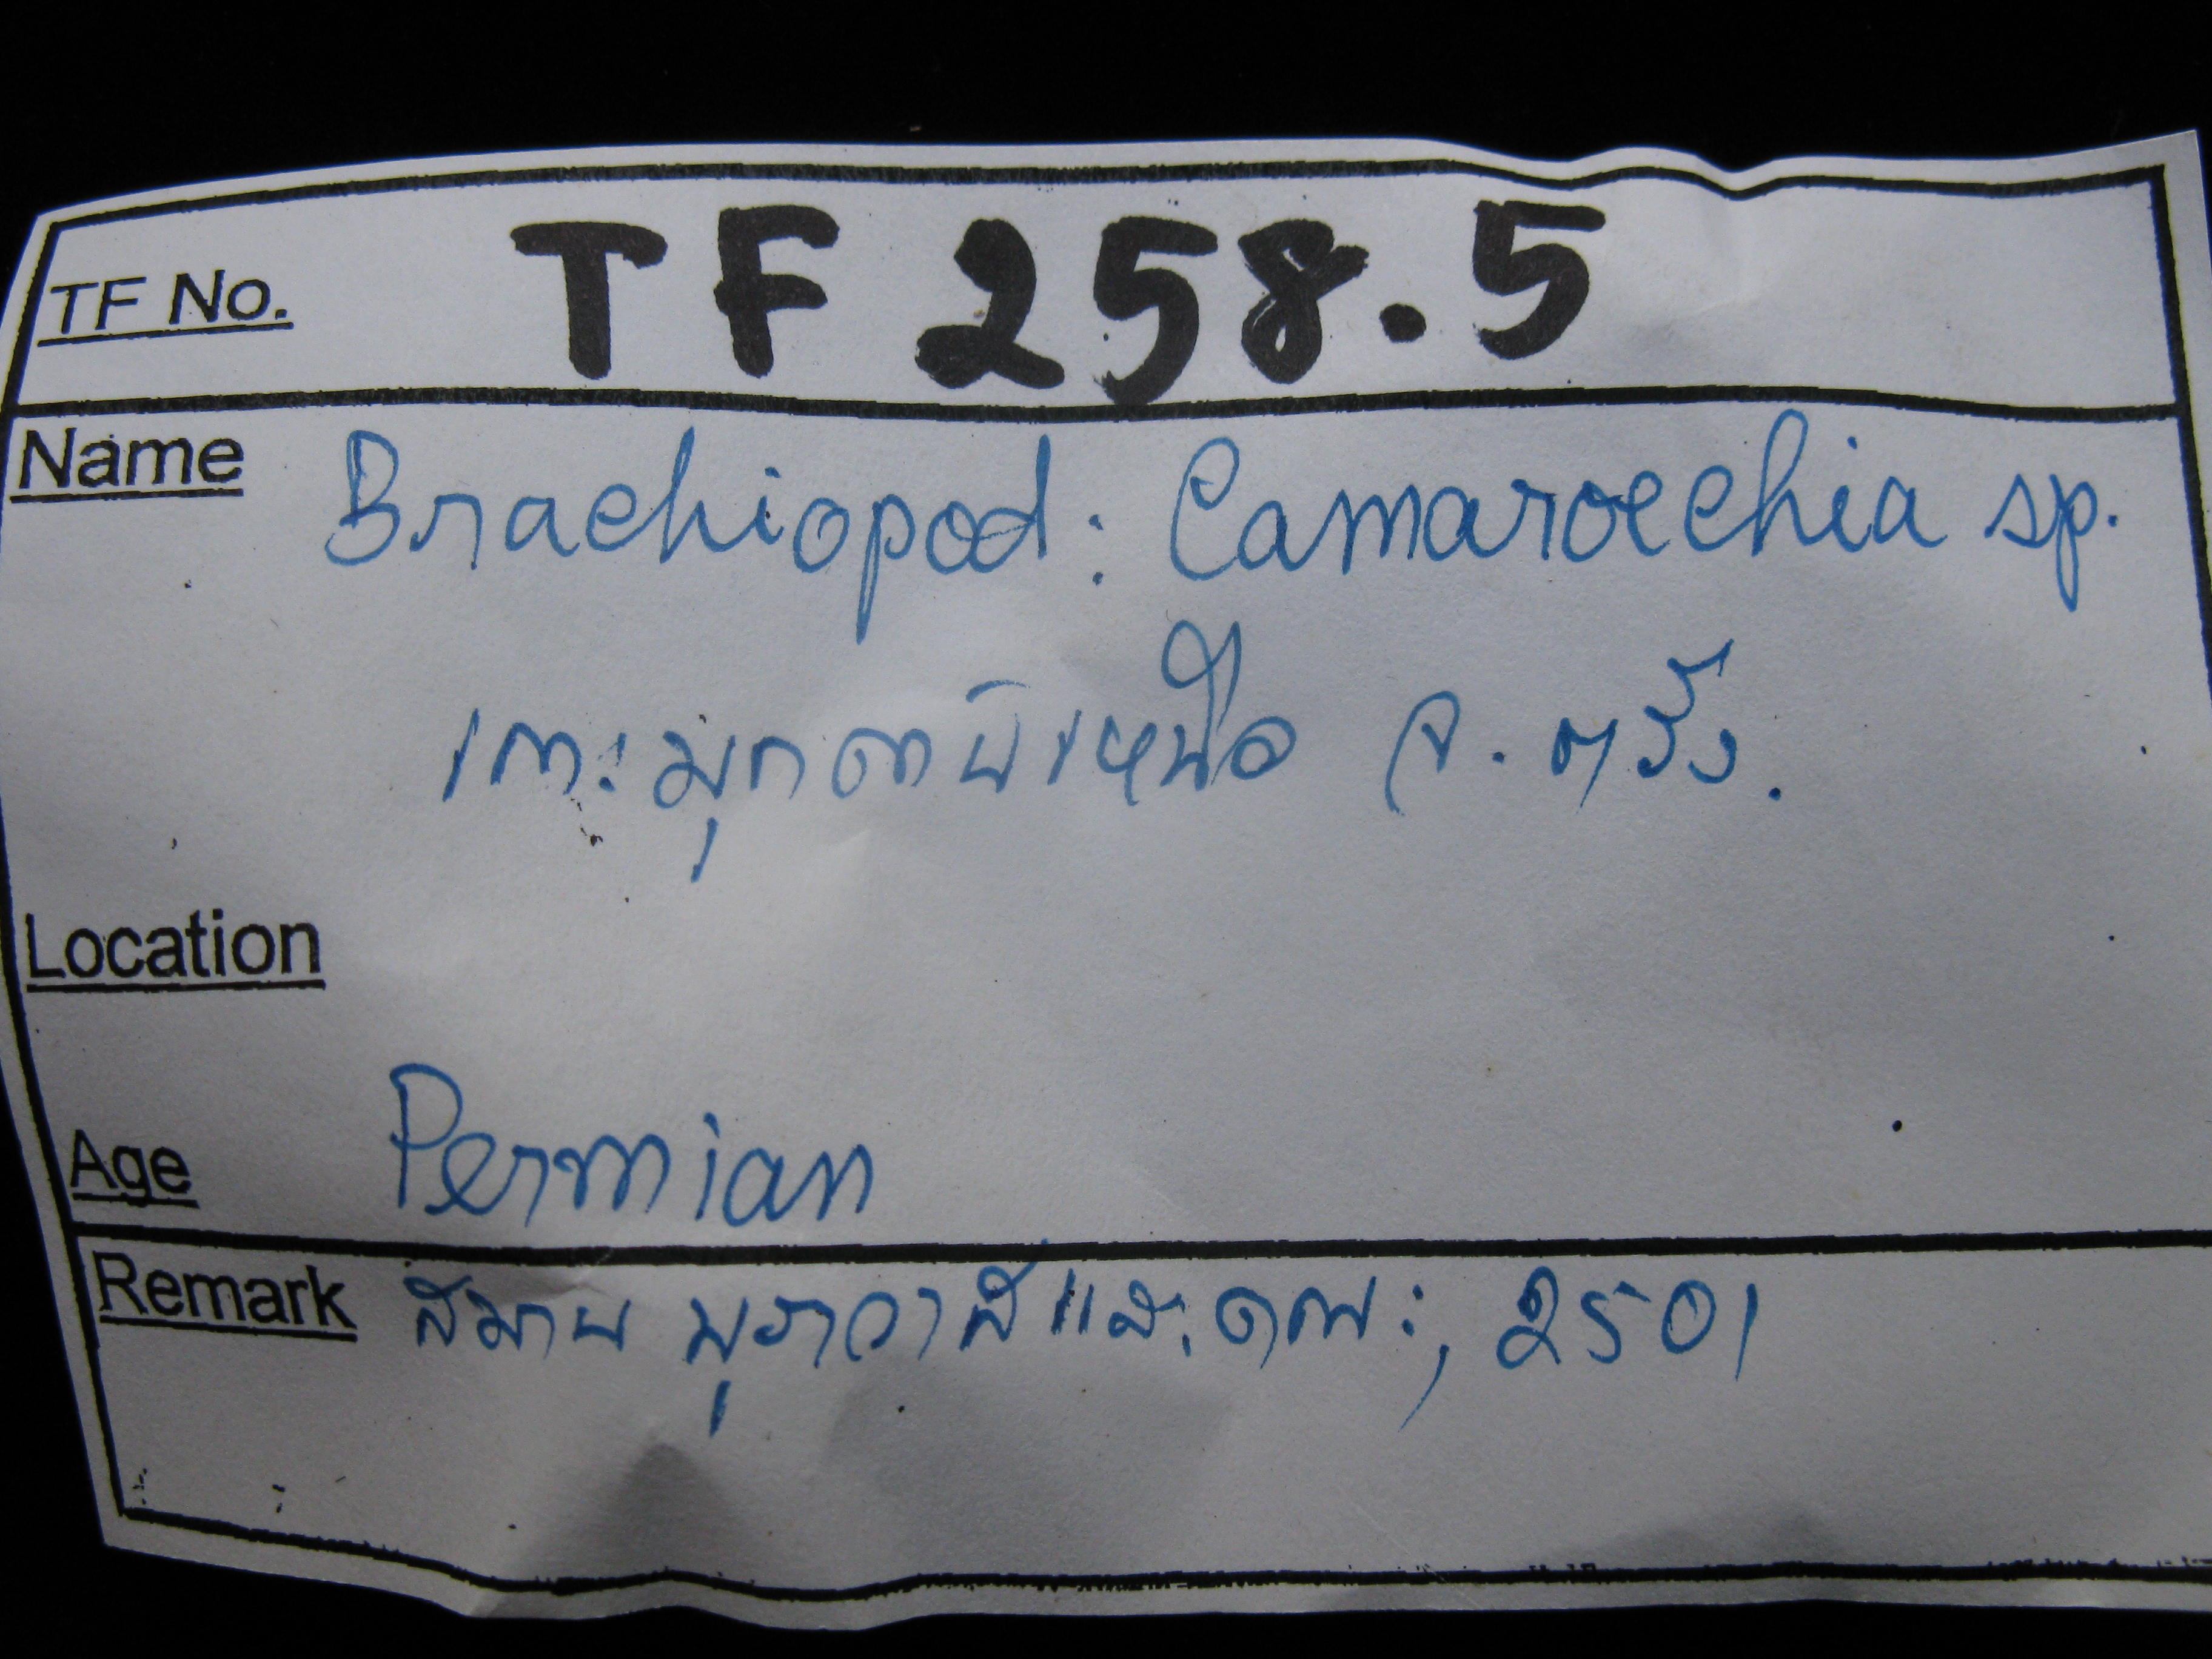 TF No. TF 258.5
Name Brachiopod: Camaroechia sp.
เกาะมุกด้านเหนือ จ. ตรัง.
Location
Age Permian
Remark สมาน บุราวาศและคณะ, 2501